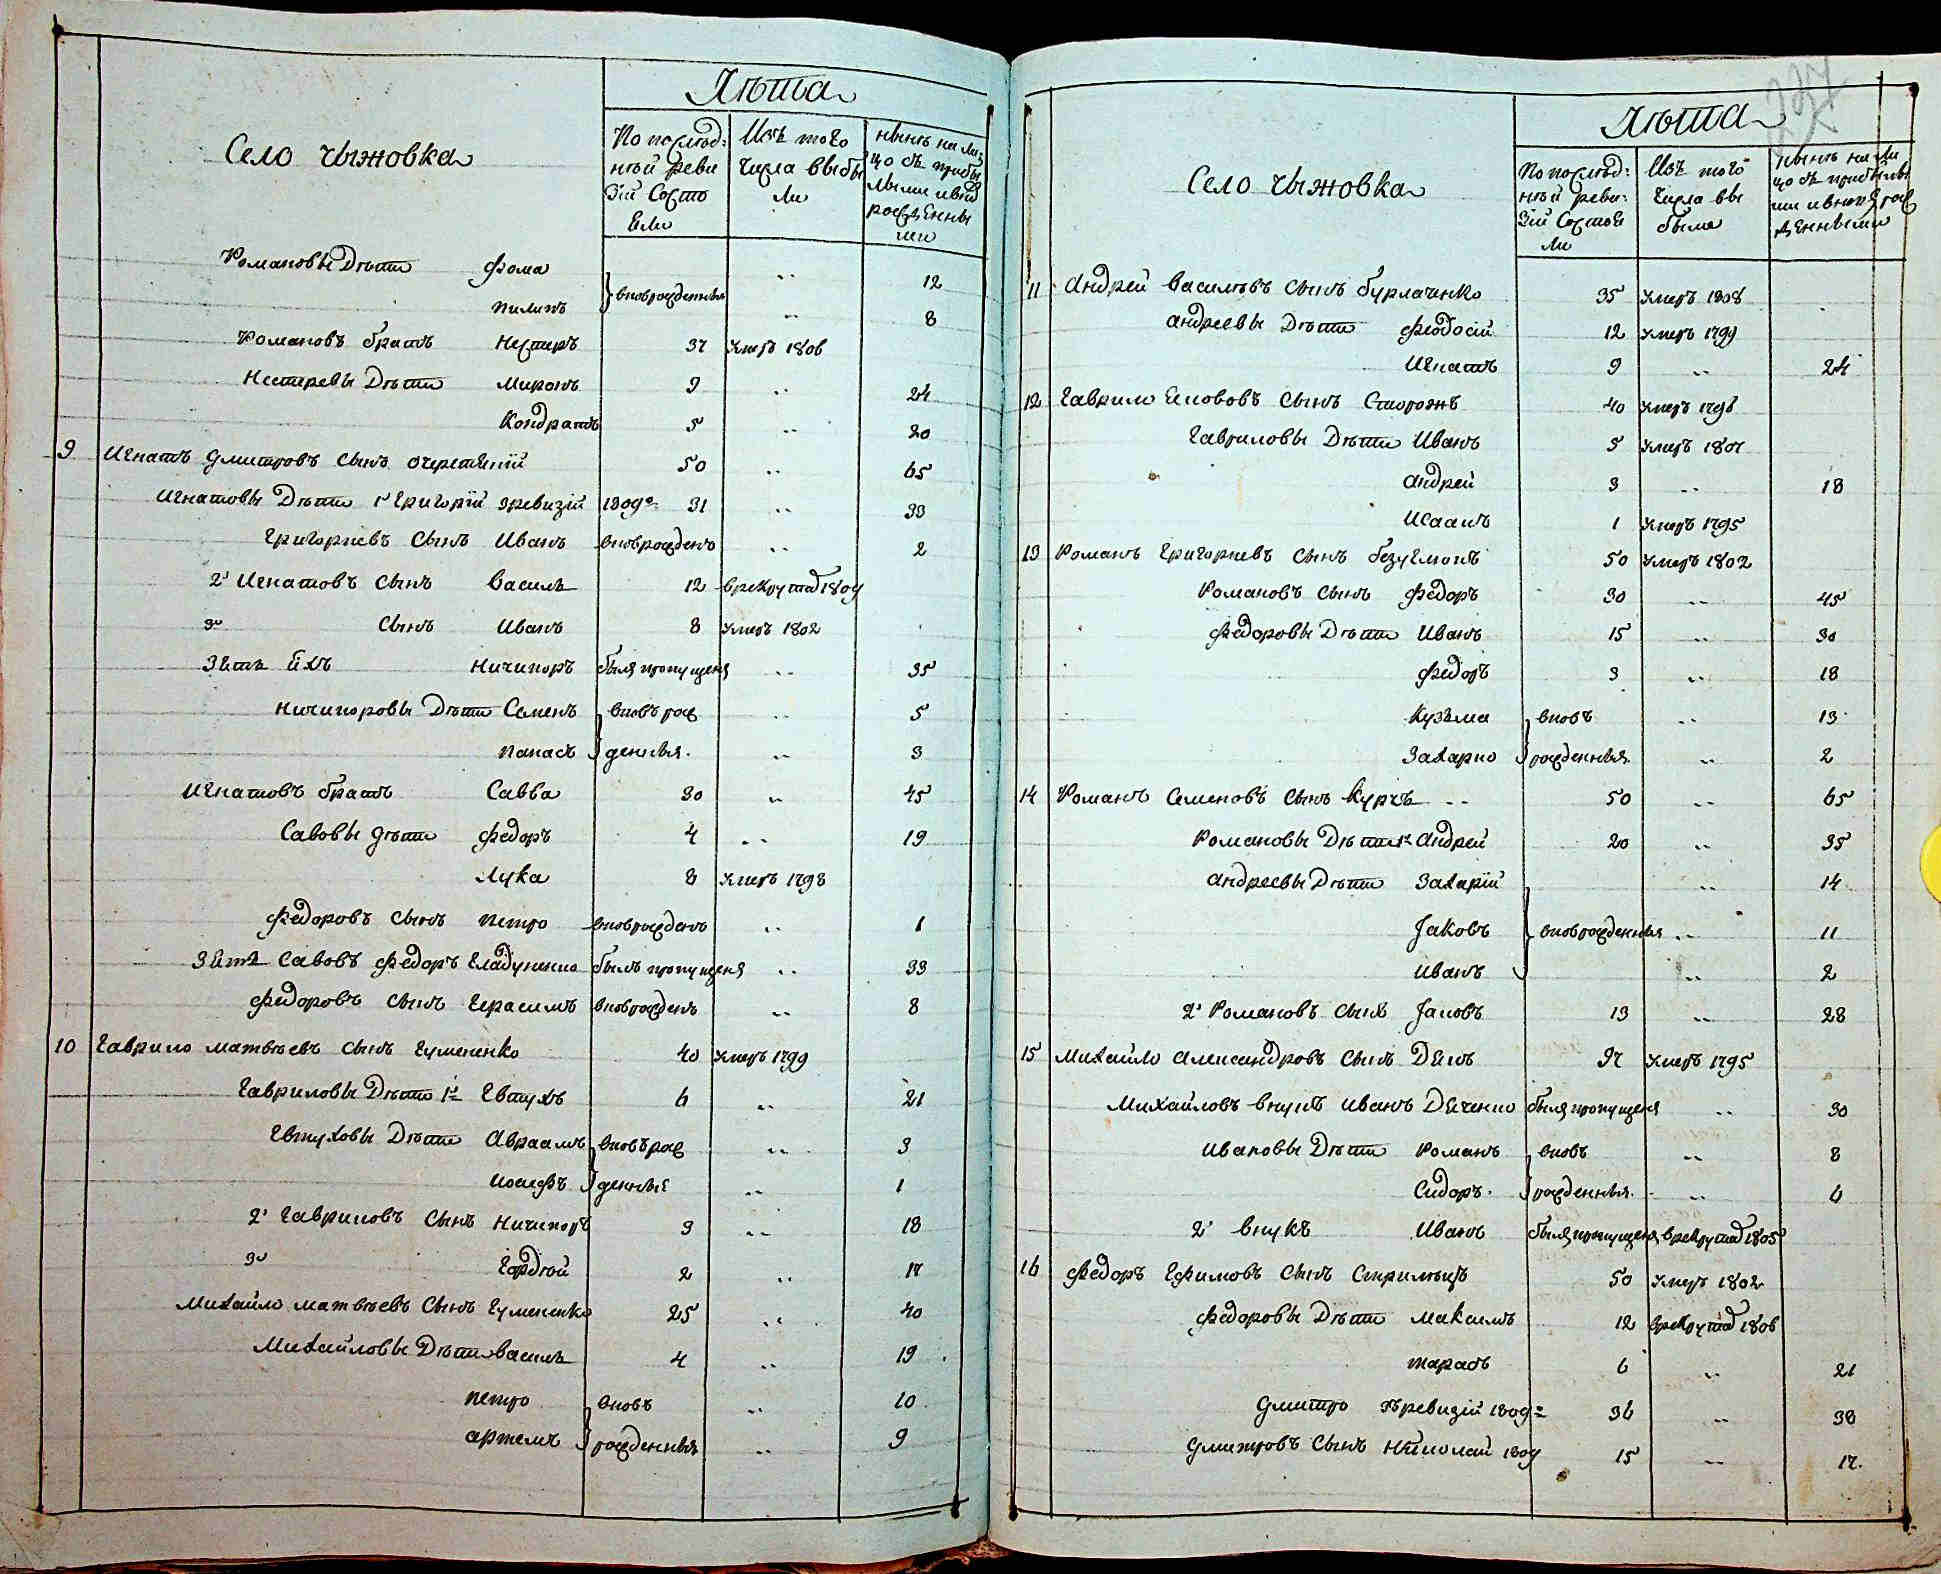 Лѣта
Село Чыжовка
По послѣд=
нѣй реви
зіи состо
ели
Изъ того
числа выбы
ли
нынѣ на ли=
цо съ прибы
лыми и внов
рожденны
ми
Романовы Дѣти Фома вноврожденныя „ 12
Пилипъ „ 8
Романовъ братъ Нестеръ 37 умеръ 1806
Нестеревы Дѣти Миронъ 9 „ 24
Кондратъ 5 „ 20
9 Игнатъ Дмитровъ сынъ 50 „ 65
Игнатовы Дѣти 1й Григорій зревизій 1809го 31 „ 33
Григориевъ сынъ Иванъ вноврожденъ „ 2
2й Игнатовъ сынъ Василь 12 врекруты 1809
3й сынъ Иванъ 8 умеръ 1802
Зять ихъ Ничипоръ былъ пропущенъ „ 35
Ничипоровы Дѣти Семенъ вновь рож „ 5
Панасъ денныя „ 3
Игнатовъ братъ Савва 30 „ 45
Савовы дѣти Федоръ 4 „ 19
Лука 8 умеръ 1798
Федоровъ сынъ Петро вноврожденъ „ 1
Зять Савовъ Федоръ Гладуненко былъ пропущенъ „ 33
Федоровъ сынъ Герасимъ вноврожденъ „ 8
10 Гаврило Матвѣевъ сынъ Гумененко 40 умеръ 1799
Гавриловы Дѣти 1й Евтухъ 6 „ 21
Евтуховы Дѣти Авраамъ вновьрож „ 3
Иосифъ денныя „ 1
2й Гавриловъ сынъ Ничипоръ 3 „ 18
3й Гордѣй 2 „ 17
Михайло Матвѣевъ сынъ Гумененко 25 „ 40
Михайловы Дѣти Василь 4 „ 19
Петро вновь „ 10
Артемъ рожденныя „ 9
Лѣта
Село Чыжовка
По послѣд=
нѣй реви=
зіи состоя
ли
Изъ того
числа вы
было
нынѣ на ли
цо съ прибылы
ми и вновь рож
денными
11 Андрей Васильевъ сынъ Бурлаченко 35 умеръ 1808
Андреевы Дѣти Феодосій 12 умеръ 1799
Игнатъ 9 „ 24
12 Гаврило сынъ Сторожъ 40 умеръ 1796
Гавриловы Дѣти Иванъ 5 умеръ 1801
Андрей 3 „ 18
Исаакъ 1 умеръ 1795
13 Романъ Григориевъ сынъ 50 умеръ 1802
Романовъ сынъ Федоръ 30 „ 45
Федоровы Дѣти Иванъ 15 „ 30
Федоръ 3 „ 18
Кузьма вновь „ 13
Захарко рожденныя „ 2
14 Романъ Семеновъ сынъ 50 „ 65
Романовы Дѣти 1й Андрей 20 „ 35
Андреевы Дѣти Захарій „ 14
Јаковъ вноврожденныя „ 11
Иванъ „ 2
2й Романовъ сынъ Јаковъ 13 „ 28
15 Михайло Александровъ сынъ 97 умеръ 1795
Михайловъ внукъ Иванъ былъ пропущенъ „ 30
Ивановы Дѣти Романъ вновь „ 8
Сидоръ рожденныя „ 6
2й внукъ Иванъ былъ пропущенъ врекруты 1805
16 Федоръ Ефимовъ сынъ 50 умеръ 1802
Федоровы Дѣти Максимъ 12 врекруты 1806
Тарасъ 6 „ 21
Дмитро зъревизіи 1809го 36 „ 38
Дмитровъ сынъ Николай 1809 15 „ 17